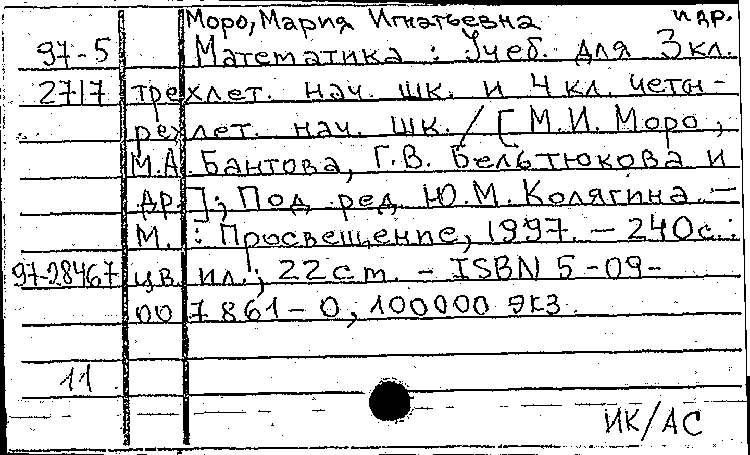 Моро, Мария Игнатьевна и др.
97-5 Математика : Учеб. для 3 кл.
2717 трехлет. нач. шк. и 4 кл. четы-
рехлет. нач. шк. / [ М.И. Моро,
М.А. Бантова, Г.В. Бельтюкова и
др.]; Под ред. Ю.М. Колягина. —
М. : Просвещение, 1997. — 240 с. :
97-28467 цв. ил.; 22 см. - ISBN 5-09-
007861-0, 100000 экз.
11
ИК/АС